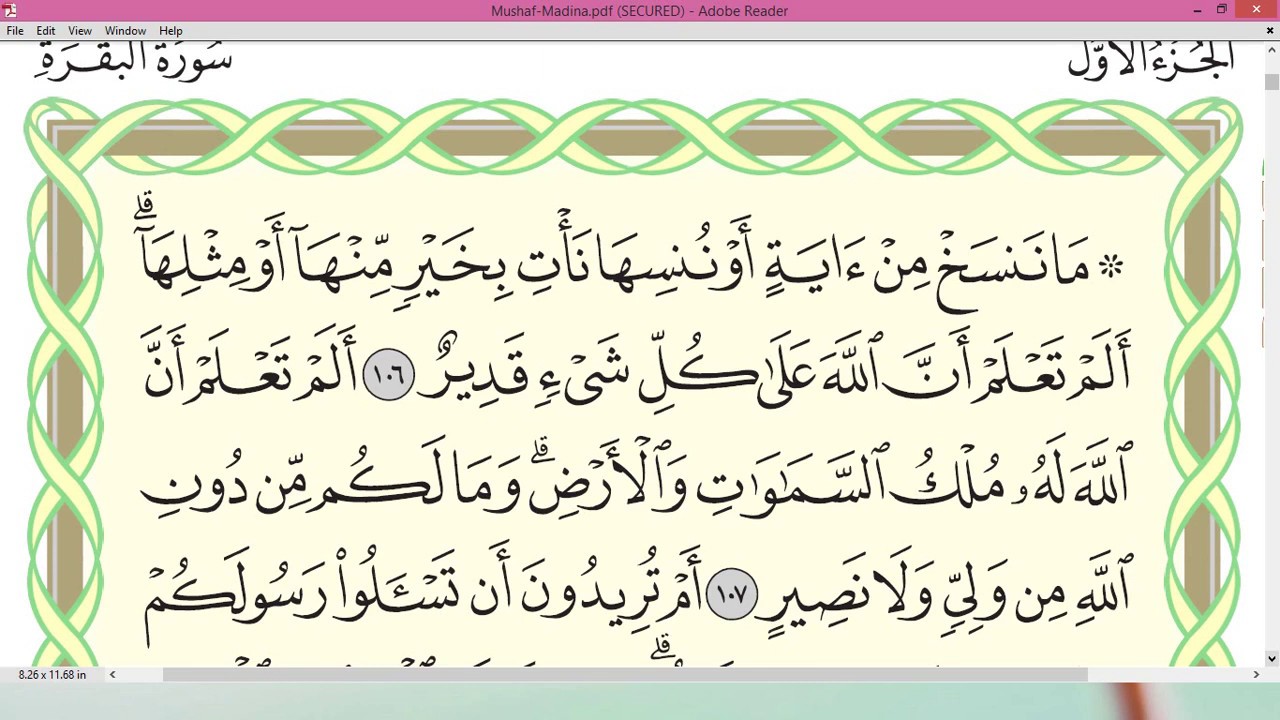 Mushaf-Madina.pdf (SECURED) - Adobe Reader
File Edit View Window Help
الجُزْءُ الأَوَّلُ سُورَةُ البَقَرَةِ
۞ مَا نَنسَخْ مِنْ ءَايَةٍ أَوْ نُنسِهَا نَأْتِ بِخَيْرٍ مِّنْهَآ أَوْ مِثْلِهَآ ۗ
أَلَمْ تَعْلَمْ أَنَّ ٱللَّهَ عَلَىٰ كُلِّ شَىْءٍ قَدِيرٌ ١٠٦ أَلَمْ تَعْلَمْ أَنَّ
ٱللَّهَ لَهُۥ مُلْكُ ٱلسَّمَٰوَٰتِ وَٱلْأَرْضِ ۗ وَمَا لَكُم مِّن دُونِ
ٱللَّهِ مِن وَلِىٍّ وَلَا نَصِيرٍ ١٠٧ أَمْ تُرِيدُونَ أَن تَسْـَٔلُوا۟ رَسُولَكُمْ
8.26 x 11.68 in